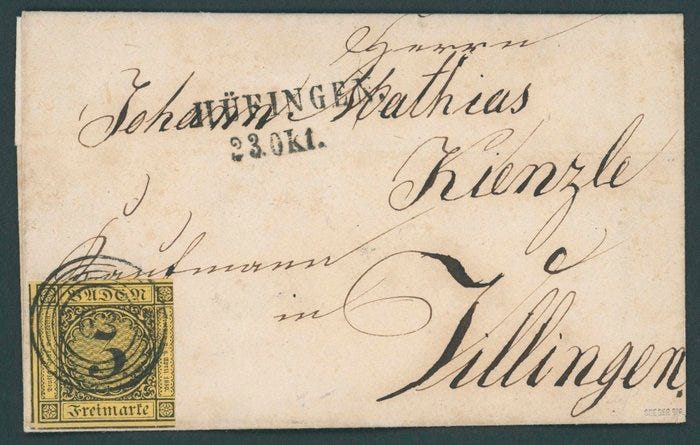 Herrn
Johann Mathias
HÜFINGEN.
23.Okt.
Kienzle
Kaufmann
in
Villingen.
BADEN
3
Freimarke